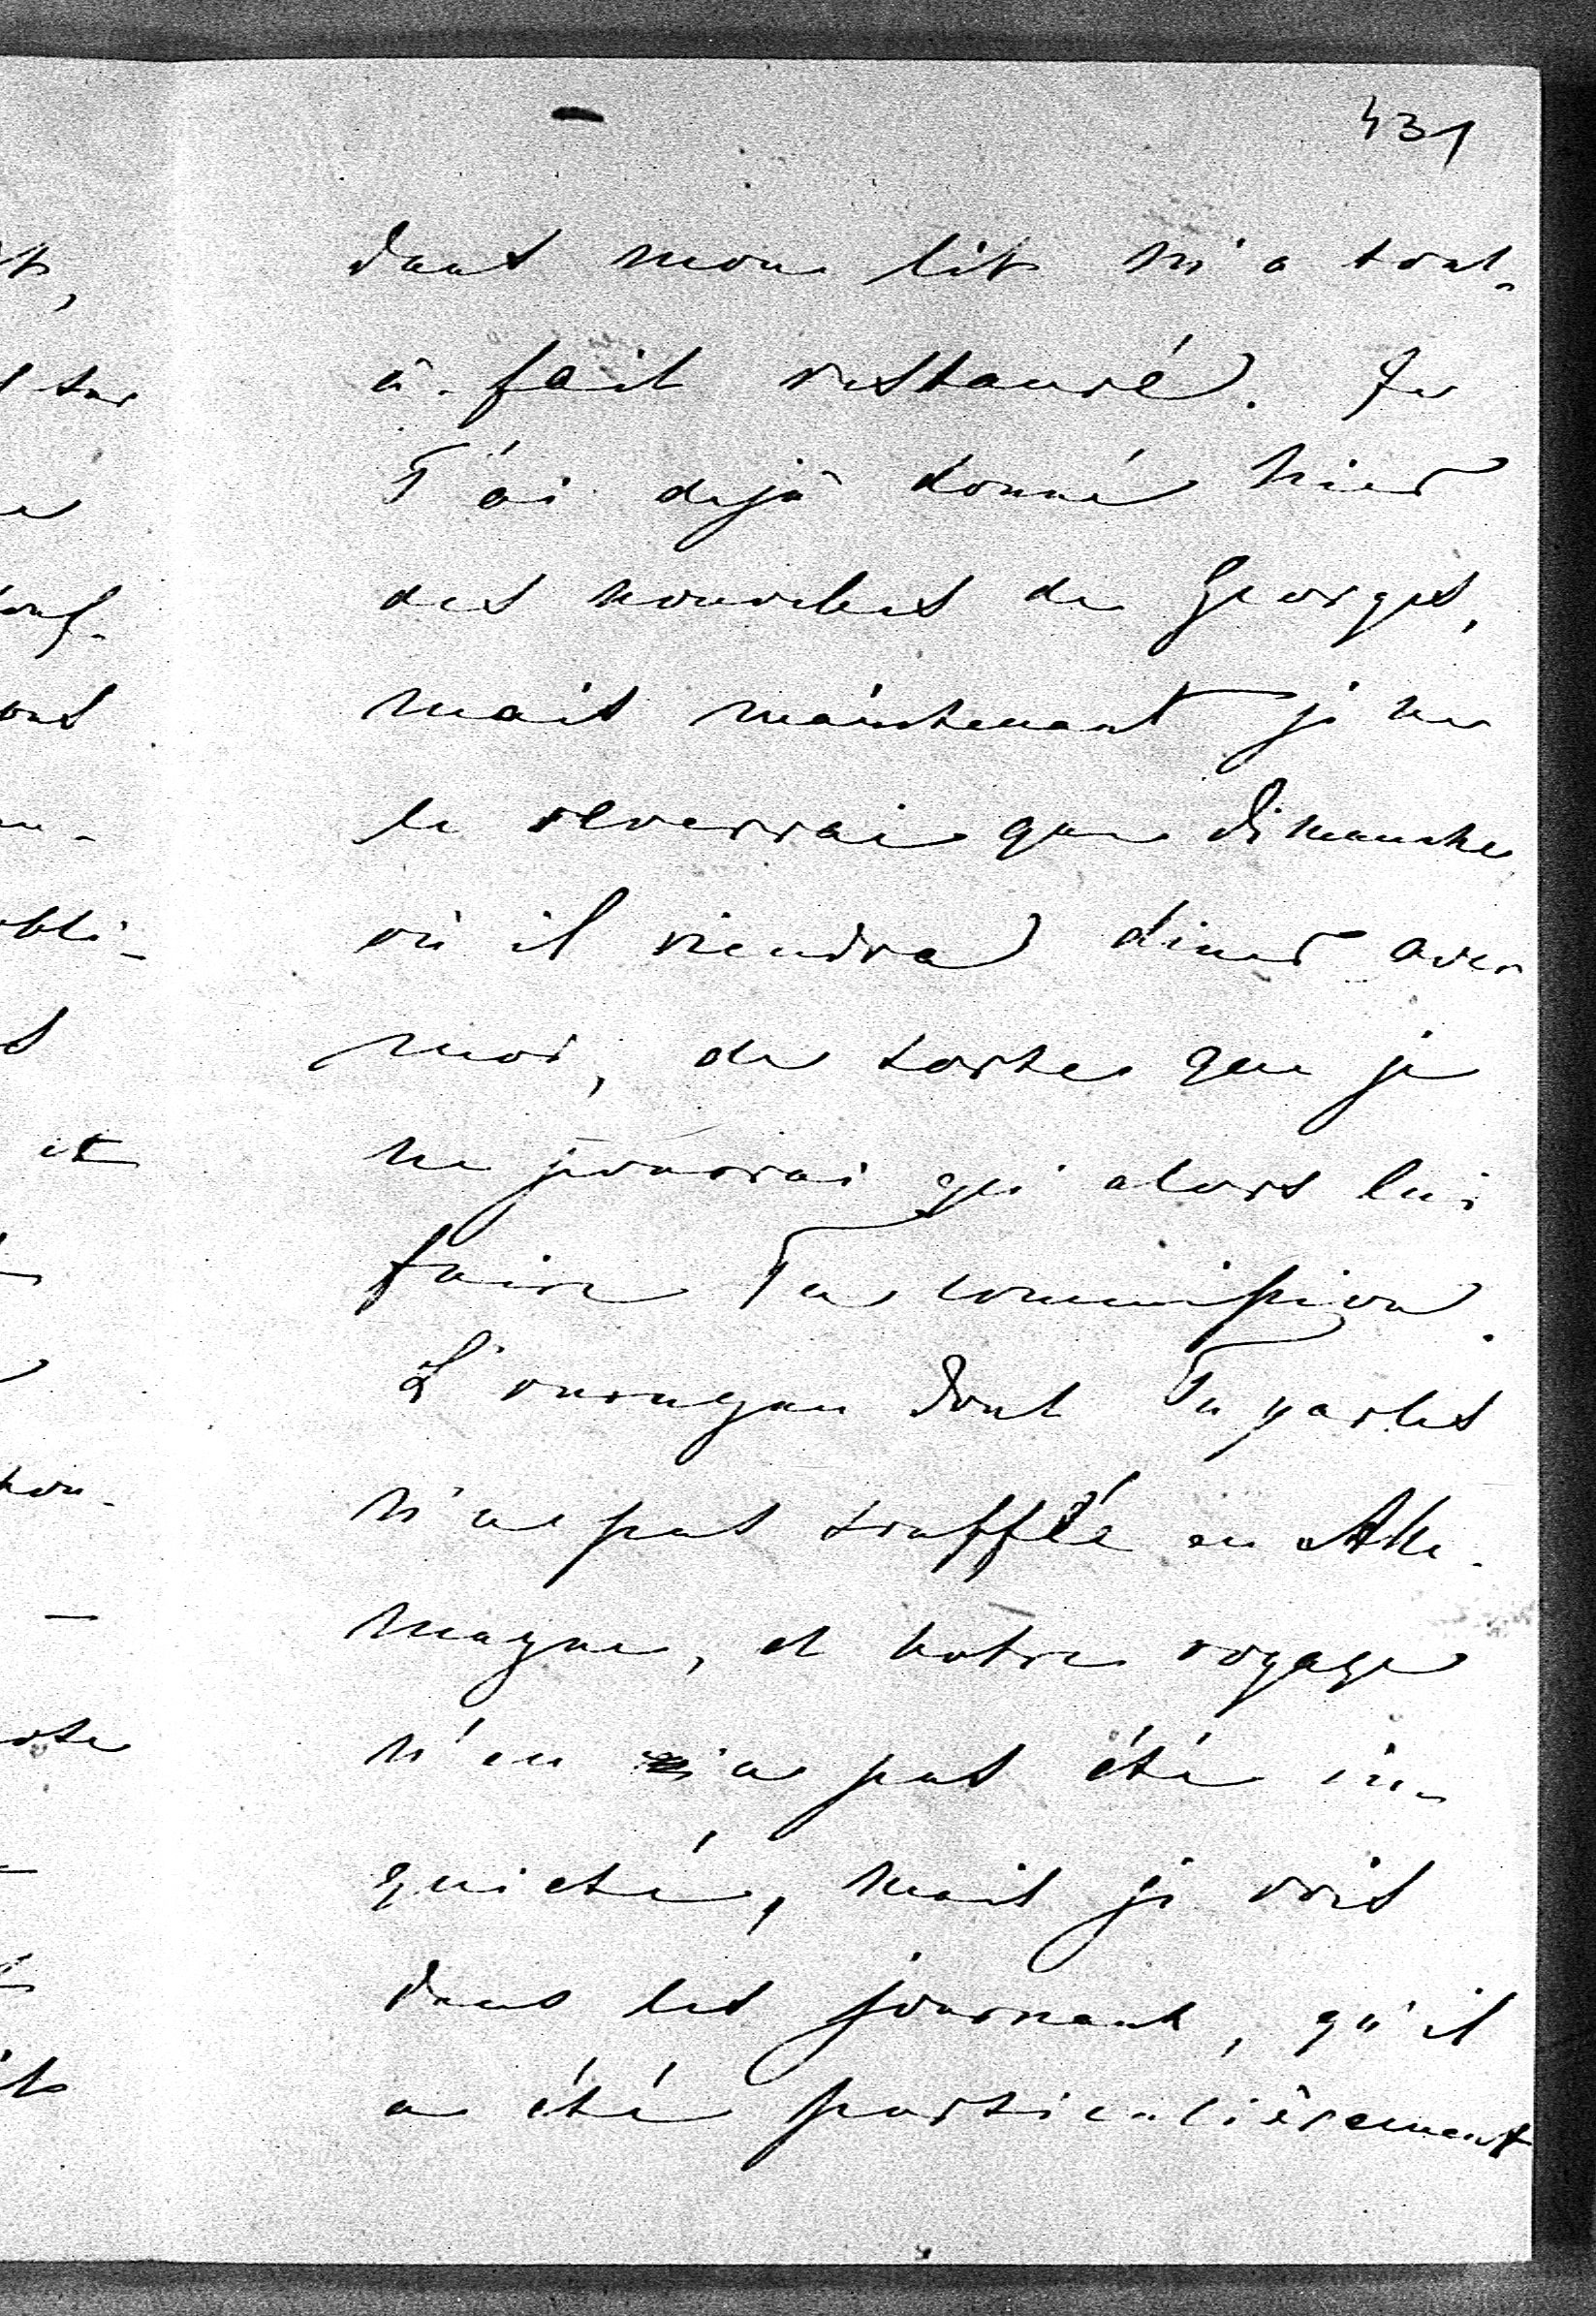 431
dans mon lit m'a tout-
à-fait restauré. Je
T'ai dejà donné hier
des nouvelles de Georges,
mais maintenant je ne
le reverrai que Dimanche
où il viendra diner avec
moi, de sorte que je
ne pourrai qu'alors lui
faire Ta commission.
L'ouragan dont Tu parles
n'a pas soufflé en Alle-
magne, et notre voyage
n'en a pas été in-
quieté, mais je vois
dans les journaux, qu'il
a été particulièrement